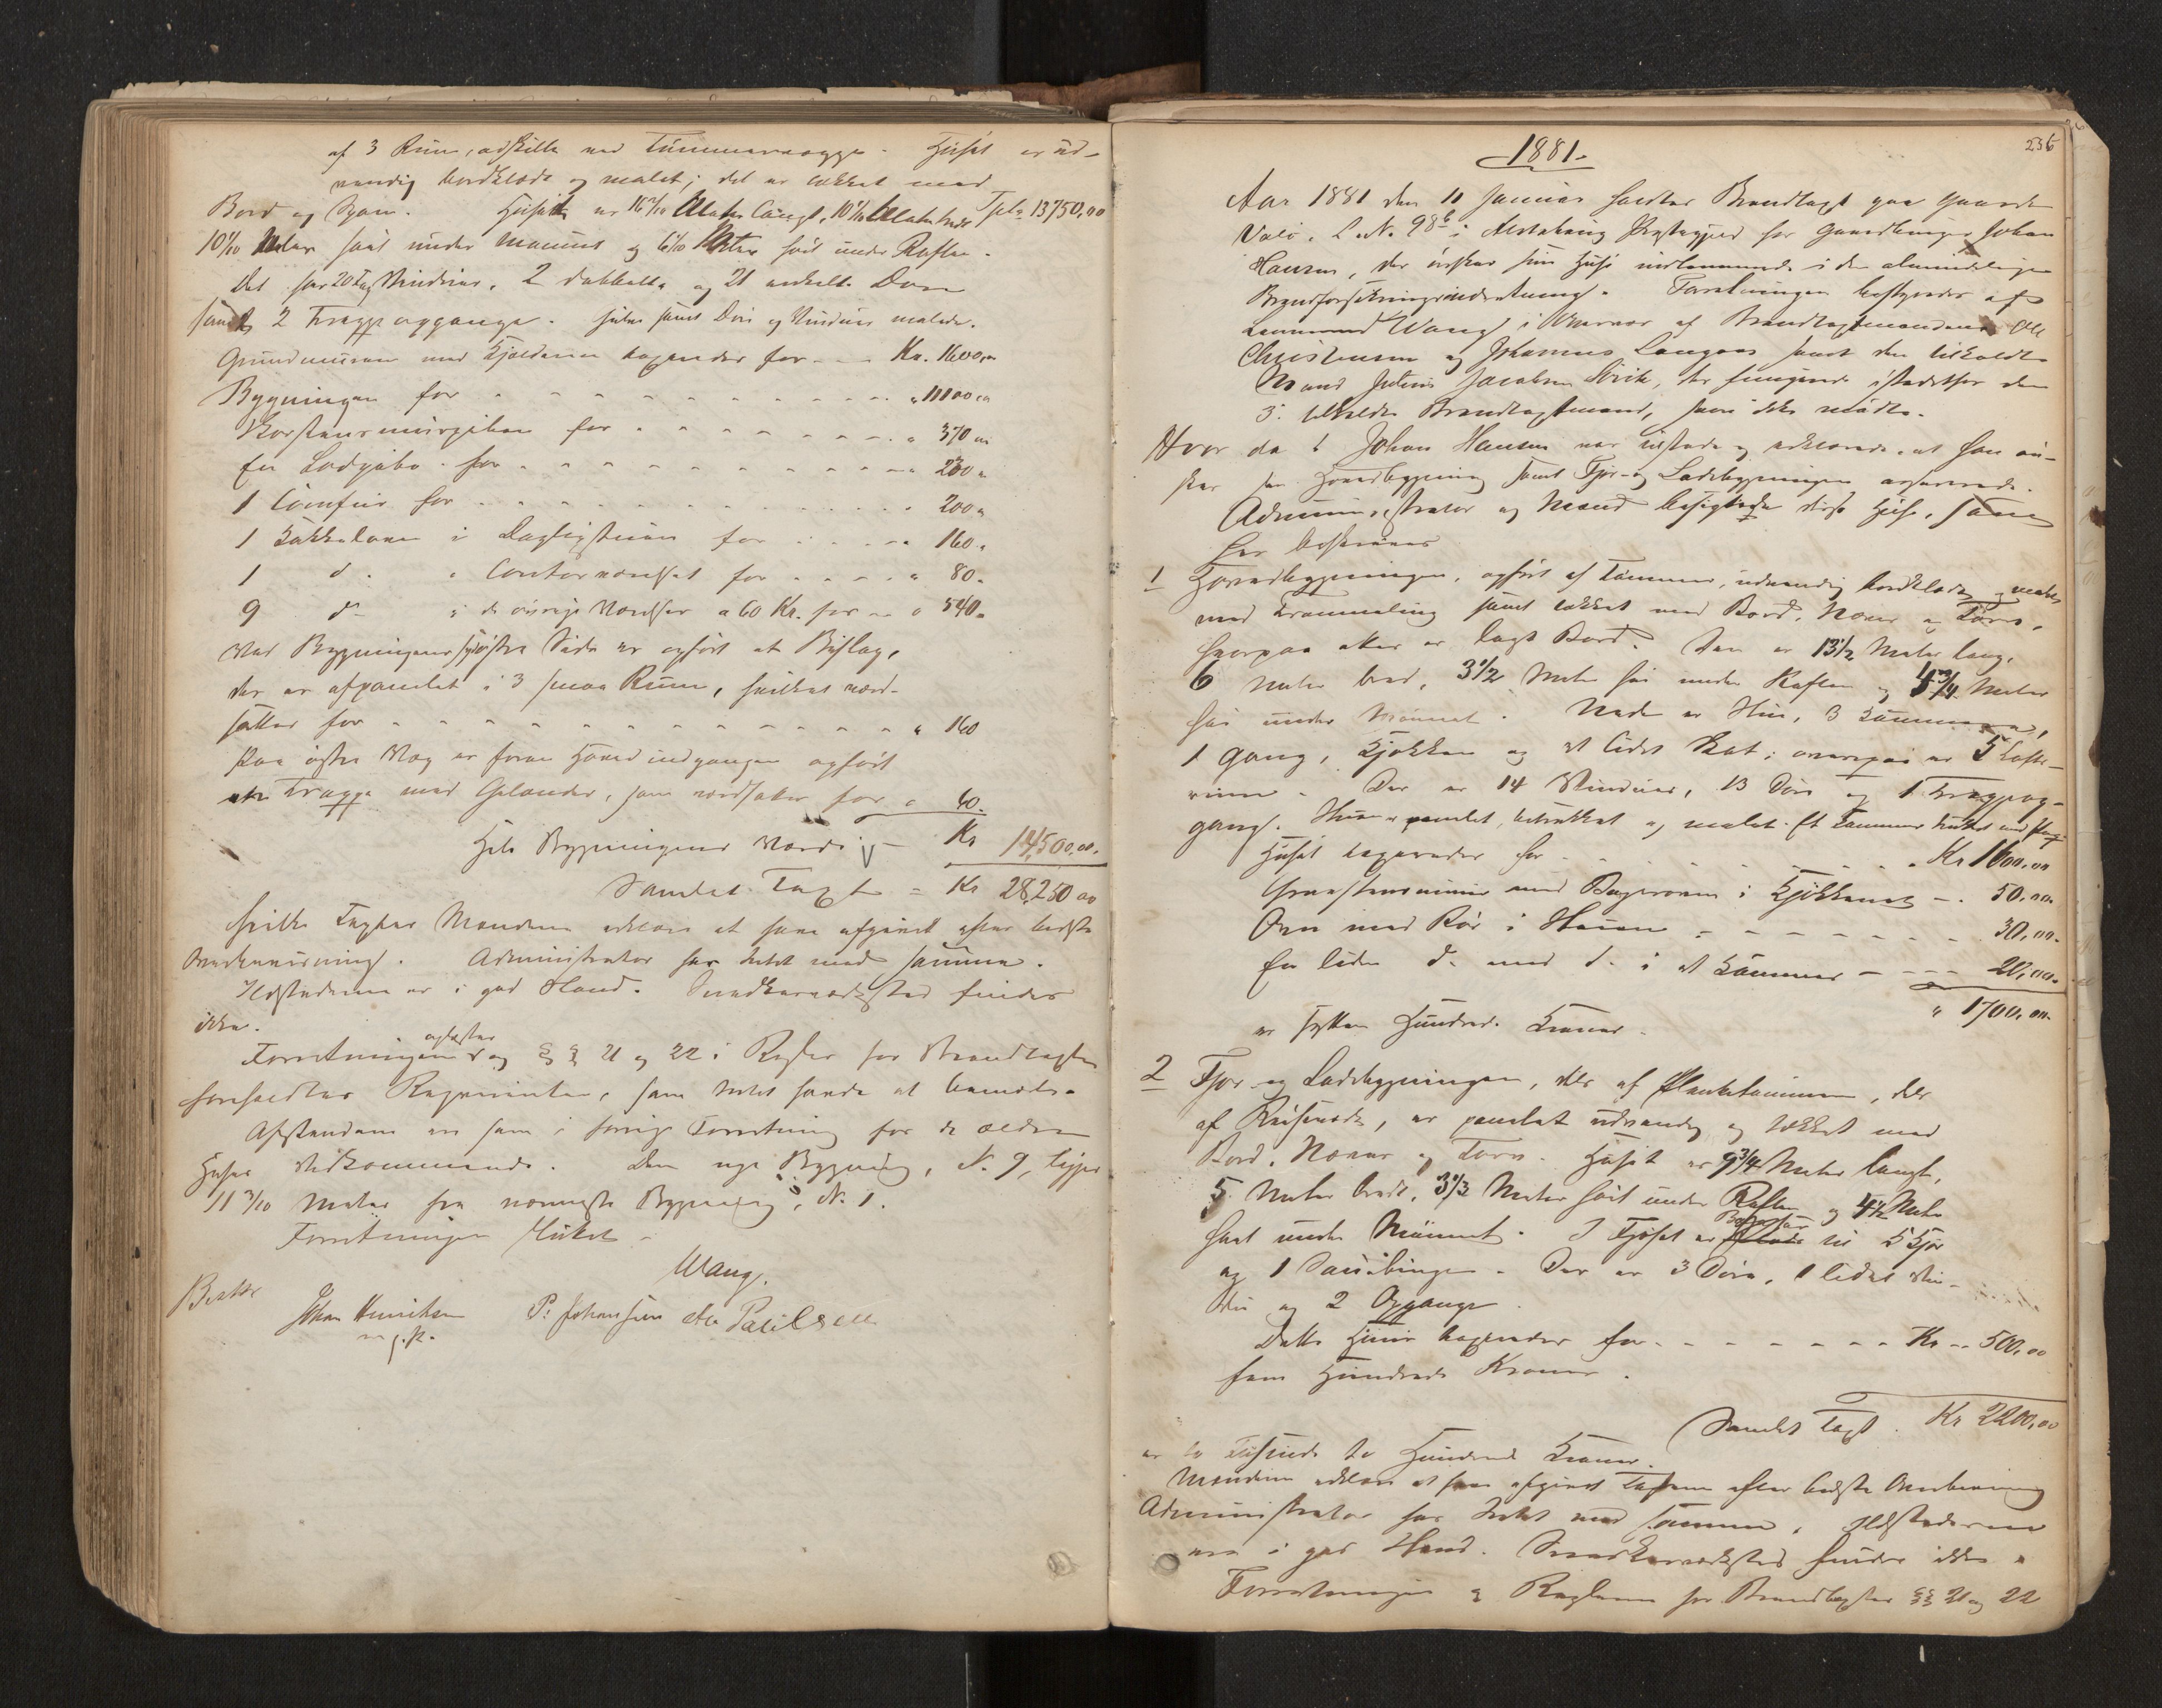 af 3 Rum, adskilte ved Tømmervægge. Huset er ud-
vendig bordklædt og malet; det er tækket med
Bord og Spon. Huset er 16 2/10 Meter langt, 10 1/10 Meter bredt Tpt. 13750,00
10 1/10 Meter høit under Mønnet og 6 1/10 Meter høit under Raften.
Det har 20 Fag Vinduer, 2 dobbelte og 21 enkelte Døre
samt 2 Trappeopgange. samt Døre og Vinduer malede.
Grundmuren med Kjælderen taxeredes for - - - Kr. 1600,00
Bygningen for - - - " 11100,00
Skorstensmurpiben for - - - " 370,00
En Ladpibe for - - - " 230 "
1 Comfur for - - - 200 "
1 Kakkelovn i Dagligstuen for - - - 160 "
1 do. " Contorværelset for - - - " 80 "
9 do " i de øvrige Værelser a 60 Kr. for - - " 540 "
Ved Bygningens Side er opført et Bislag,
der er afpanelet i 3 smaa Rum, hvilket værd-
sættes for - - - " 160
Paa østre Væg er foran Hovedindgangen opført
en Trappe med Gelænder, som værdsættes for " 60.
Hele Bygningens Værdi - Kr 14,500,00.
Samlet Taxt = Kr 28,250 00
hvilke Taxter Mændene erklære at have afgivet efter bedste
Overbeviisning. Administrator har Intet mod samme.
Ildstederne er i god Stand. Snedkerværksted findes
ikke.
Forretningen oplæstes og §§ 21 og 22 i Regler for Brandtaxter
foreholdtes Rekvirenten, som Intet havde at bemærke.
Afstandene er som i forrige Forretning for de ældre
Huses Vedkommende. Den nye Bygning, N. 9, ligger
11 3/10 Meter fra nærmeste Bygning, N. 1.
Forretningen sluttet.
Wang.
Johan Henriksen P. Johansen Ole Paulsen
m. p. P.
236
1881.
Aar 1881 den 11 Januar holdtes Brandtaxt paa Gaarden
L. N. 98b i Alstahaug Præstegjeld for Gaardbruger Johan
Hansen, der ønsker sine Huse indlemmede i den almindelige
Brandforsikringsindretning. Forretningen bestyredes af
Lensmand Wang i Overvær af Brandtaxtmændene Ole
Christensen og Johannes Langaas samt den tilkaldte
Mand Jacobsen, der fungerede istedetfor den
3. tilkaldte Brandtaxtmand, som ikke mødte.
Hvor da Johan Hansen var tilstede og erklærede at han øn-
sker sin Hovedbygning samt Fjøs- og Ladebygningen assureret.
Administrator og Mænd besigtigede disse Huse, som
her beskrives
1 Hovedbygningen, opført af Tømmer, udvendig bordklædt og malet
med samt tækket med Bord, Næver og Torv,
hvorpaa atter er lagt Bord. Den er 13 1/2 Meter lang,
6 Meter bred, 3 1/2 Meter høi under Raften og 5 3/4 Meter
høi under Mønnet. Nede er Stue, 3 Kammere,
1 Gang, Kjøkken og et lidet Skab; ovenpaa er 5 Lofts-
rum. Der er 14 Vinduer, 13 Døre og 1 Trappeop-
gang. Stuen er panelet, betrukket og malet. Et Kammer
Huset taxeredes for - - - Kr 1600,00
Graastensmuur med Bagerovn i Kjøkkenet - . 50,00
Ovn med Rør i Stuen - - - 30,00.
En liden do. med do. i et Kammer - - - 20,00.
" 1700,00.
er sytten Hundrede Kroner.
2 Fjøs- og Ladebygningen, dels af Planketømmer, dels
af Reisværk, er panelet udvendig og tækket med
Bord, Næver og Torv. Huset er 9 3/4 Meter langt,
5 Meter bredt, 3 1/3 Meter høit under Raften og 4 1/2 Meter
høit under Mønnet. I Fjøset er til 5 Kjør
og 1 Sauebinge. Der er 3 Døre, 1 lidet Vin-
due og 2 Opgange.
Dette Huus taxeredes for - - - Kr - 500,00
fem Hundrede Kroner.
Samlet Taxt. Kr 2200,00
er to Tusinde to Hundrede Kroner.
Mændene erklære at have afgivet Taxterne efter bedste Overbeviisning
Administrator har Intet mod samme. Ildstederne
ere i god Stand. Snedkerværksted findes ikke.
Forretningen og Reglerne for Brandtaxter §§ 21 og 22